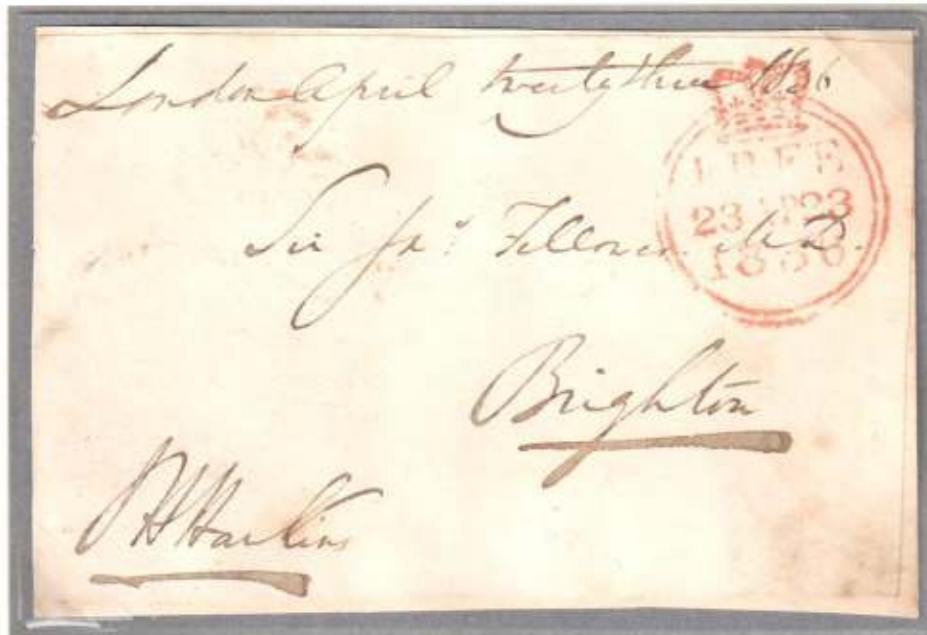 London April twenty three 1836
FREE
23 AP 23
1836
Sir Jas. Fellowes M.D.
Brighton
Hawkins